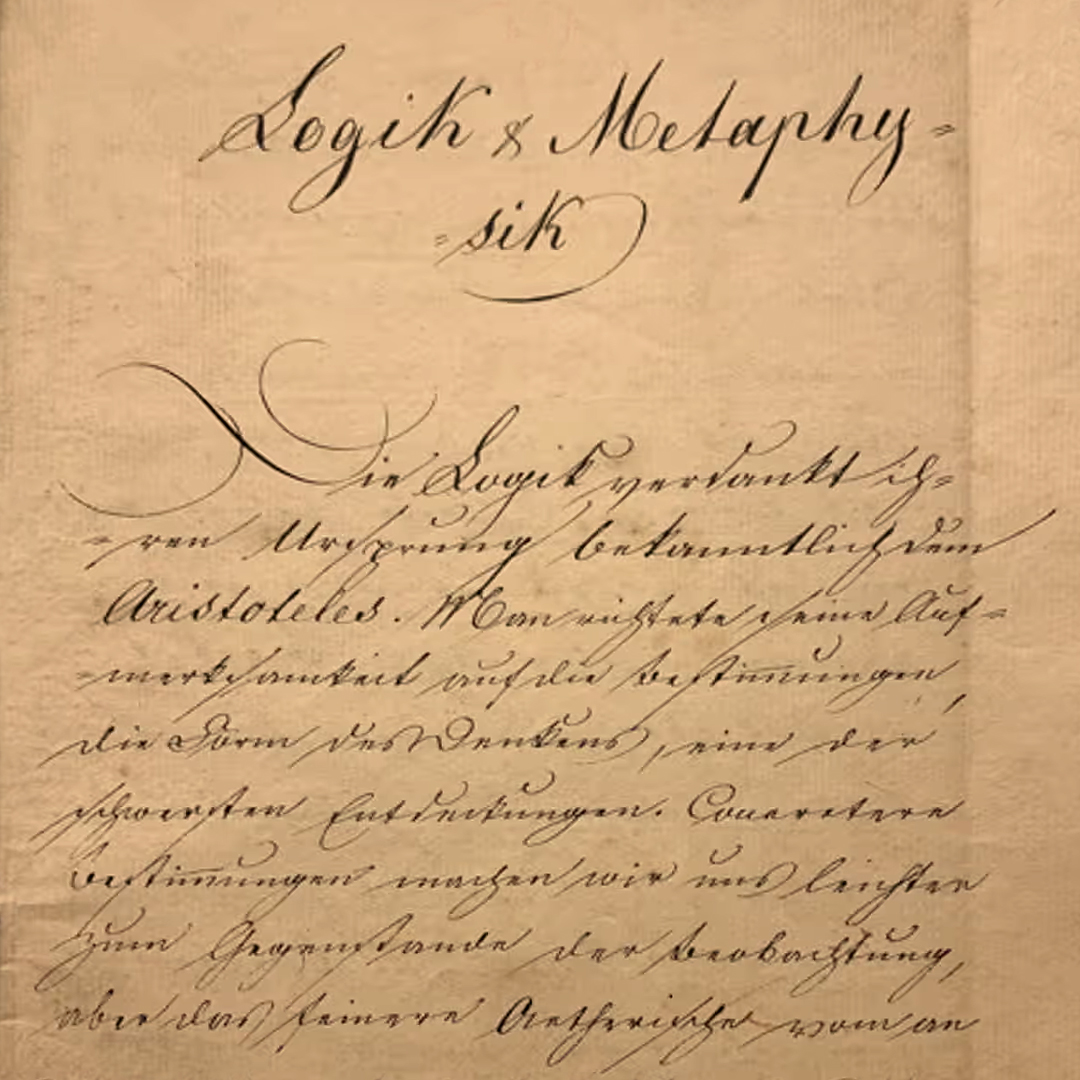 Logik & Metaphy=
=sik
Die Logik verdankt ih=
=ren Ursprung bekanntlich dem
Aristoteles. Man richtete seine Auf=
=merksamkeit auf die Bestim̅ungen,
die Form des Denkens, eine der
schwersten Entdeckungen. Concretere
Bestim̅ungen machen wir uns leichter
zum Gegenstande der Beobachtung,
aber das feinere Aetherische vom an